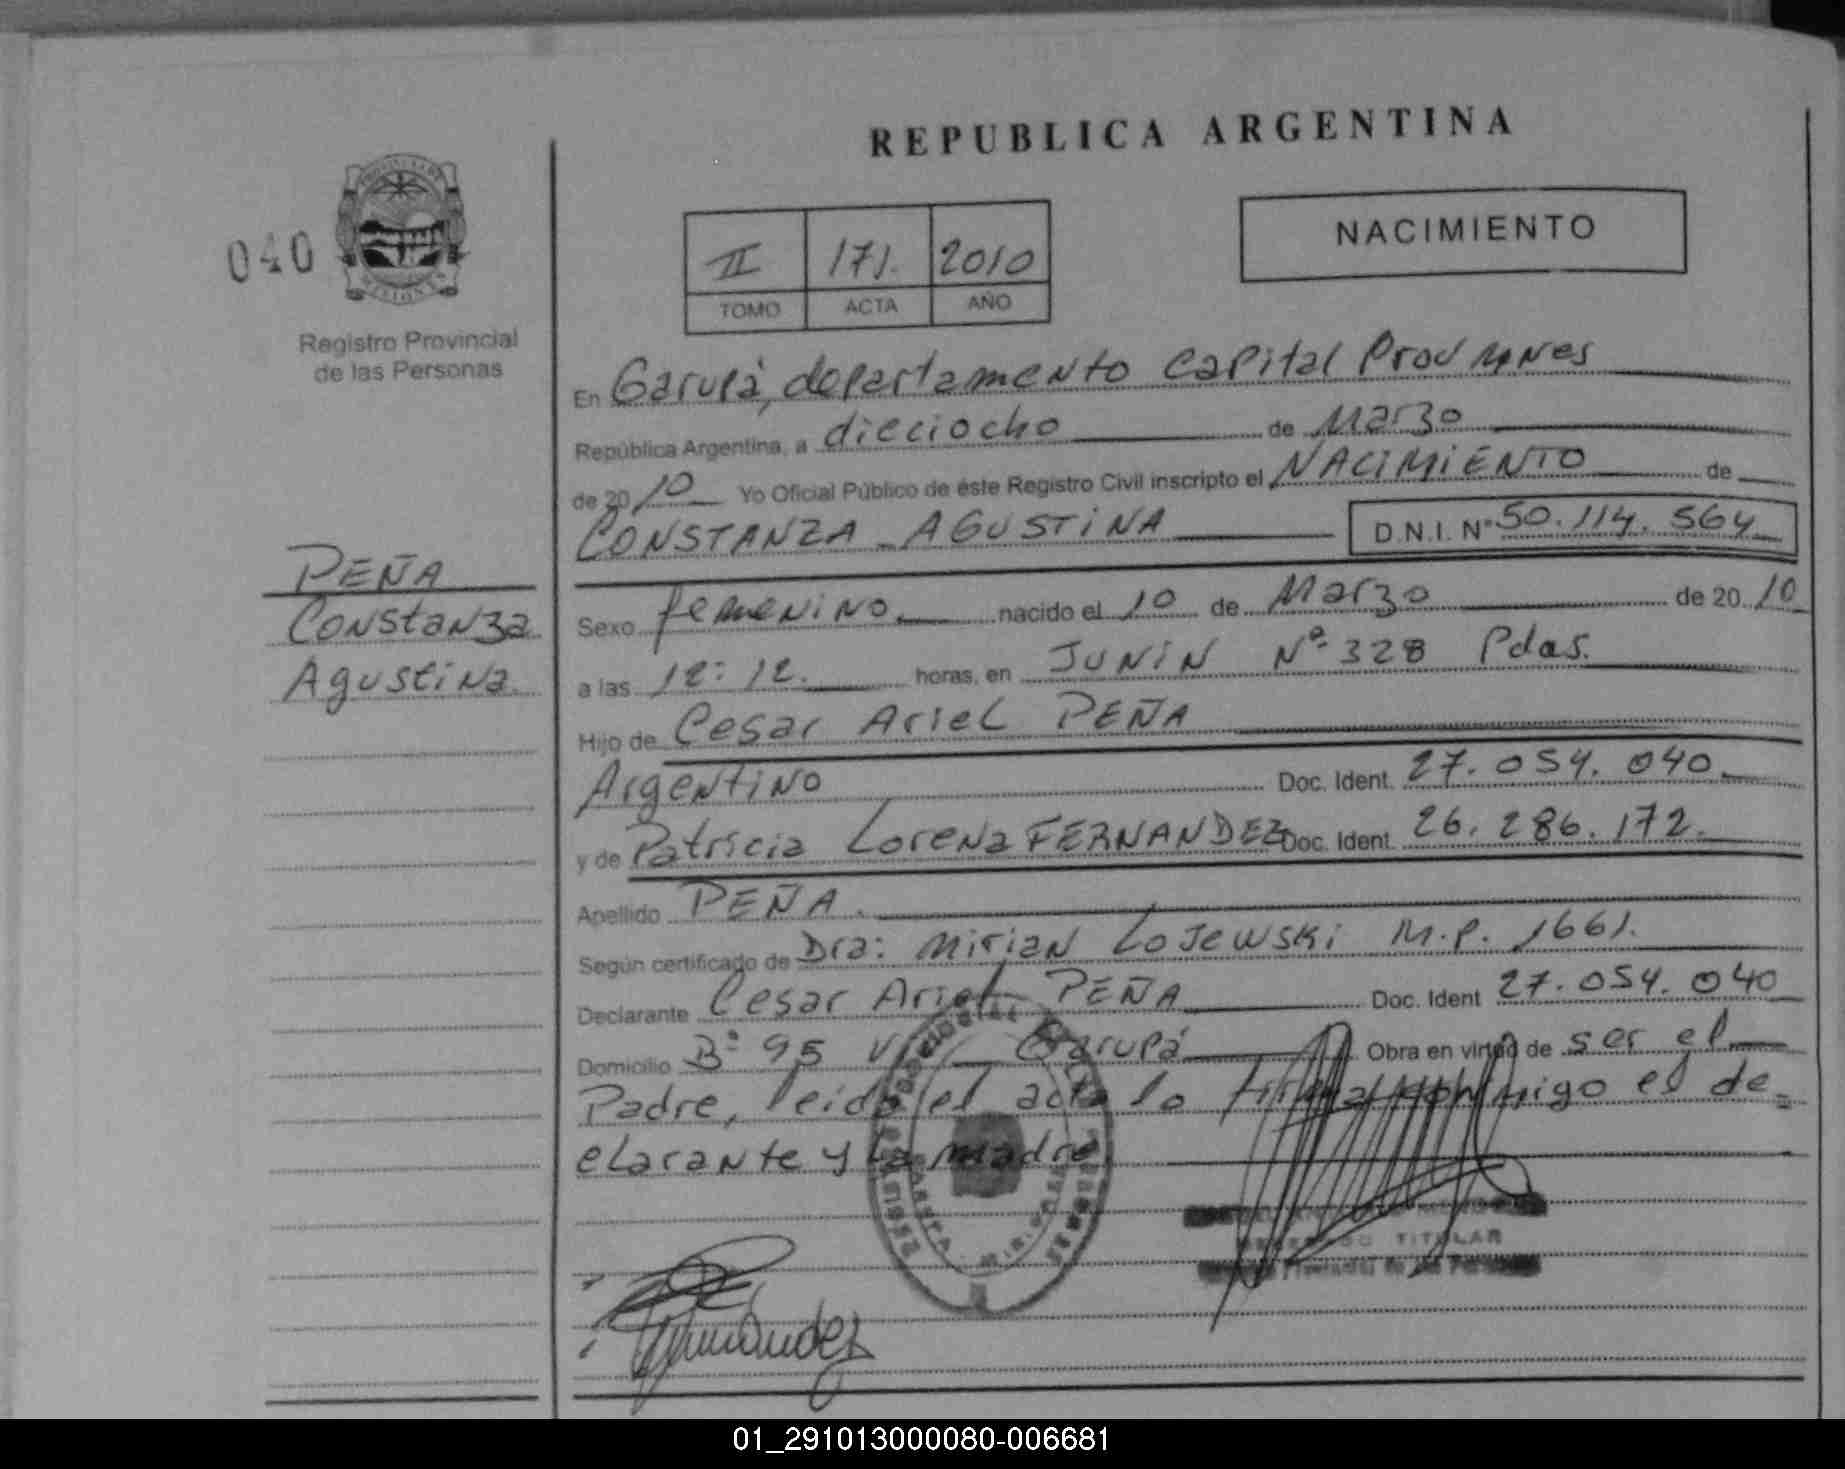 REPUBLICA ARGENTINA
NACIMIENTO
040
PROVINCIA DE
MISIONES
II 171. 2010
TOMO ACTA AÑO
Registro Provincial
de las Personas
En Garupá, departamento Capital Prov Mnes
República Argentina, a dieciocho de Marzo
de 2010 Yo Oficial Público de éste Registro Civil inscripto el NACIMIENTO de
CONSTANZA AGUSTINA D.N.I. Nº 50.114.564
PEÑA
Constanza
Agustina.
Sexo femenino nacido el 10 de Marzo de 2010
a las 12:12. horas, en JUNIN Nº 328 Pdas.
Hijo de Cesar Ariel PEÑA
Argentino Doc. Ident. 27.054.040
y de Patricia Lorena FERNANDEZ Doc. Ident. 26.286.172.
Apellido PEÑA.
Según certificado de Dra: Mirian Lojewski M.P. 1661.
Declarante Cesar Ariel PEÑA Doc. Ident 27.054.040
Domicilio Bº 95 Garupá Obra en virtud de ser el
Padre, leida el acta lo firma conmigo el de=
clarante y la madre
TITULAR
Fernández
01_291013000080-006681